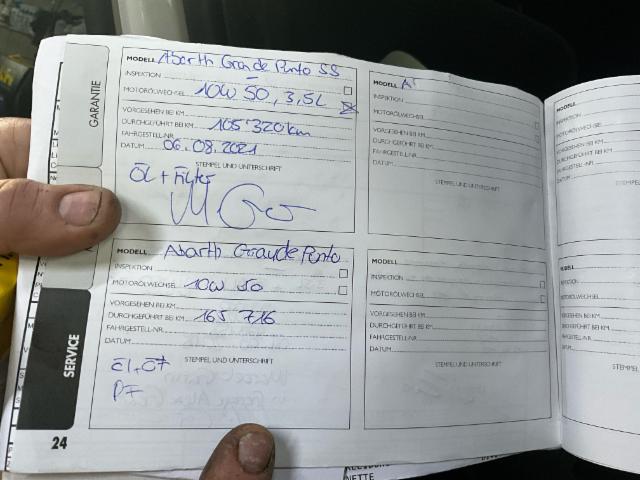 GARANTIE
SERVICE
24
MODELL Abarth Grande Punto SS
INSPEKTION
MOTORÖLWECHSEL 10W 50, 3,5L
VORGESEHEN BEI KM
DURCHGEFÜHRT BEI KM 105'320km
FAHRGESTELL-NR.
DATUM 06.08.2021
STEMPEL UND UNTERSCHRIFT
ÖL + Filter
MODELL Abarth Grande Punto
INSPEKTION
MOTORÖLWECHSEL 10W 50
VORGESEHEN BEI KM
DURCHGEFÜHRT BEI KM 165 716
FAHRGESTELL-NR.
DATUM
STEMPEL UND UNTERSCHRIFT
Öl, ÖF
PF
MODELL A
INSPEKTION
MOTORÖLWECHSEL
VORGESEHEN BEI KM
DURCHGEFÜHRT BEI KM
FAHRGESTELL-NR.
DATUM
STEMPEL UND UNTERSCHRIFT
MODELL
INSPEKTION
MOTORÖLWECHSEL
VORGESEHEN BEI KM
DURCHGEFÜHRT BEI KM
FAHRGESTELL-NR.
DATUM
STEMPEL UND UNTERSCHRIFT
MODELL
INSPEKTION
MOTORÖLWECHSEL
VORGESEHEN BEI KM
DURCHGEFÜHRT BEI KM
FAHRGESTELL-NR.
DATUM
MODELL
INSPEKTION
MOTORÖLWECHSEL
VORGESEHEN BEI KM
DURCHGEFÜHRT BEI KM
FAHRGESTELL-NR.
DATUM